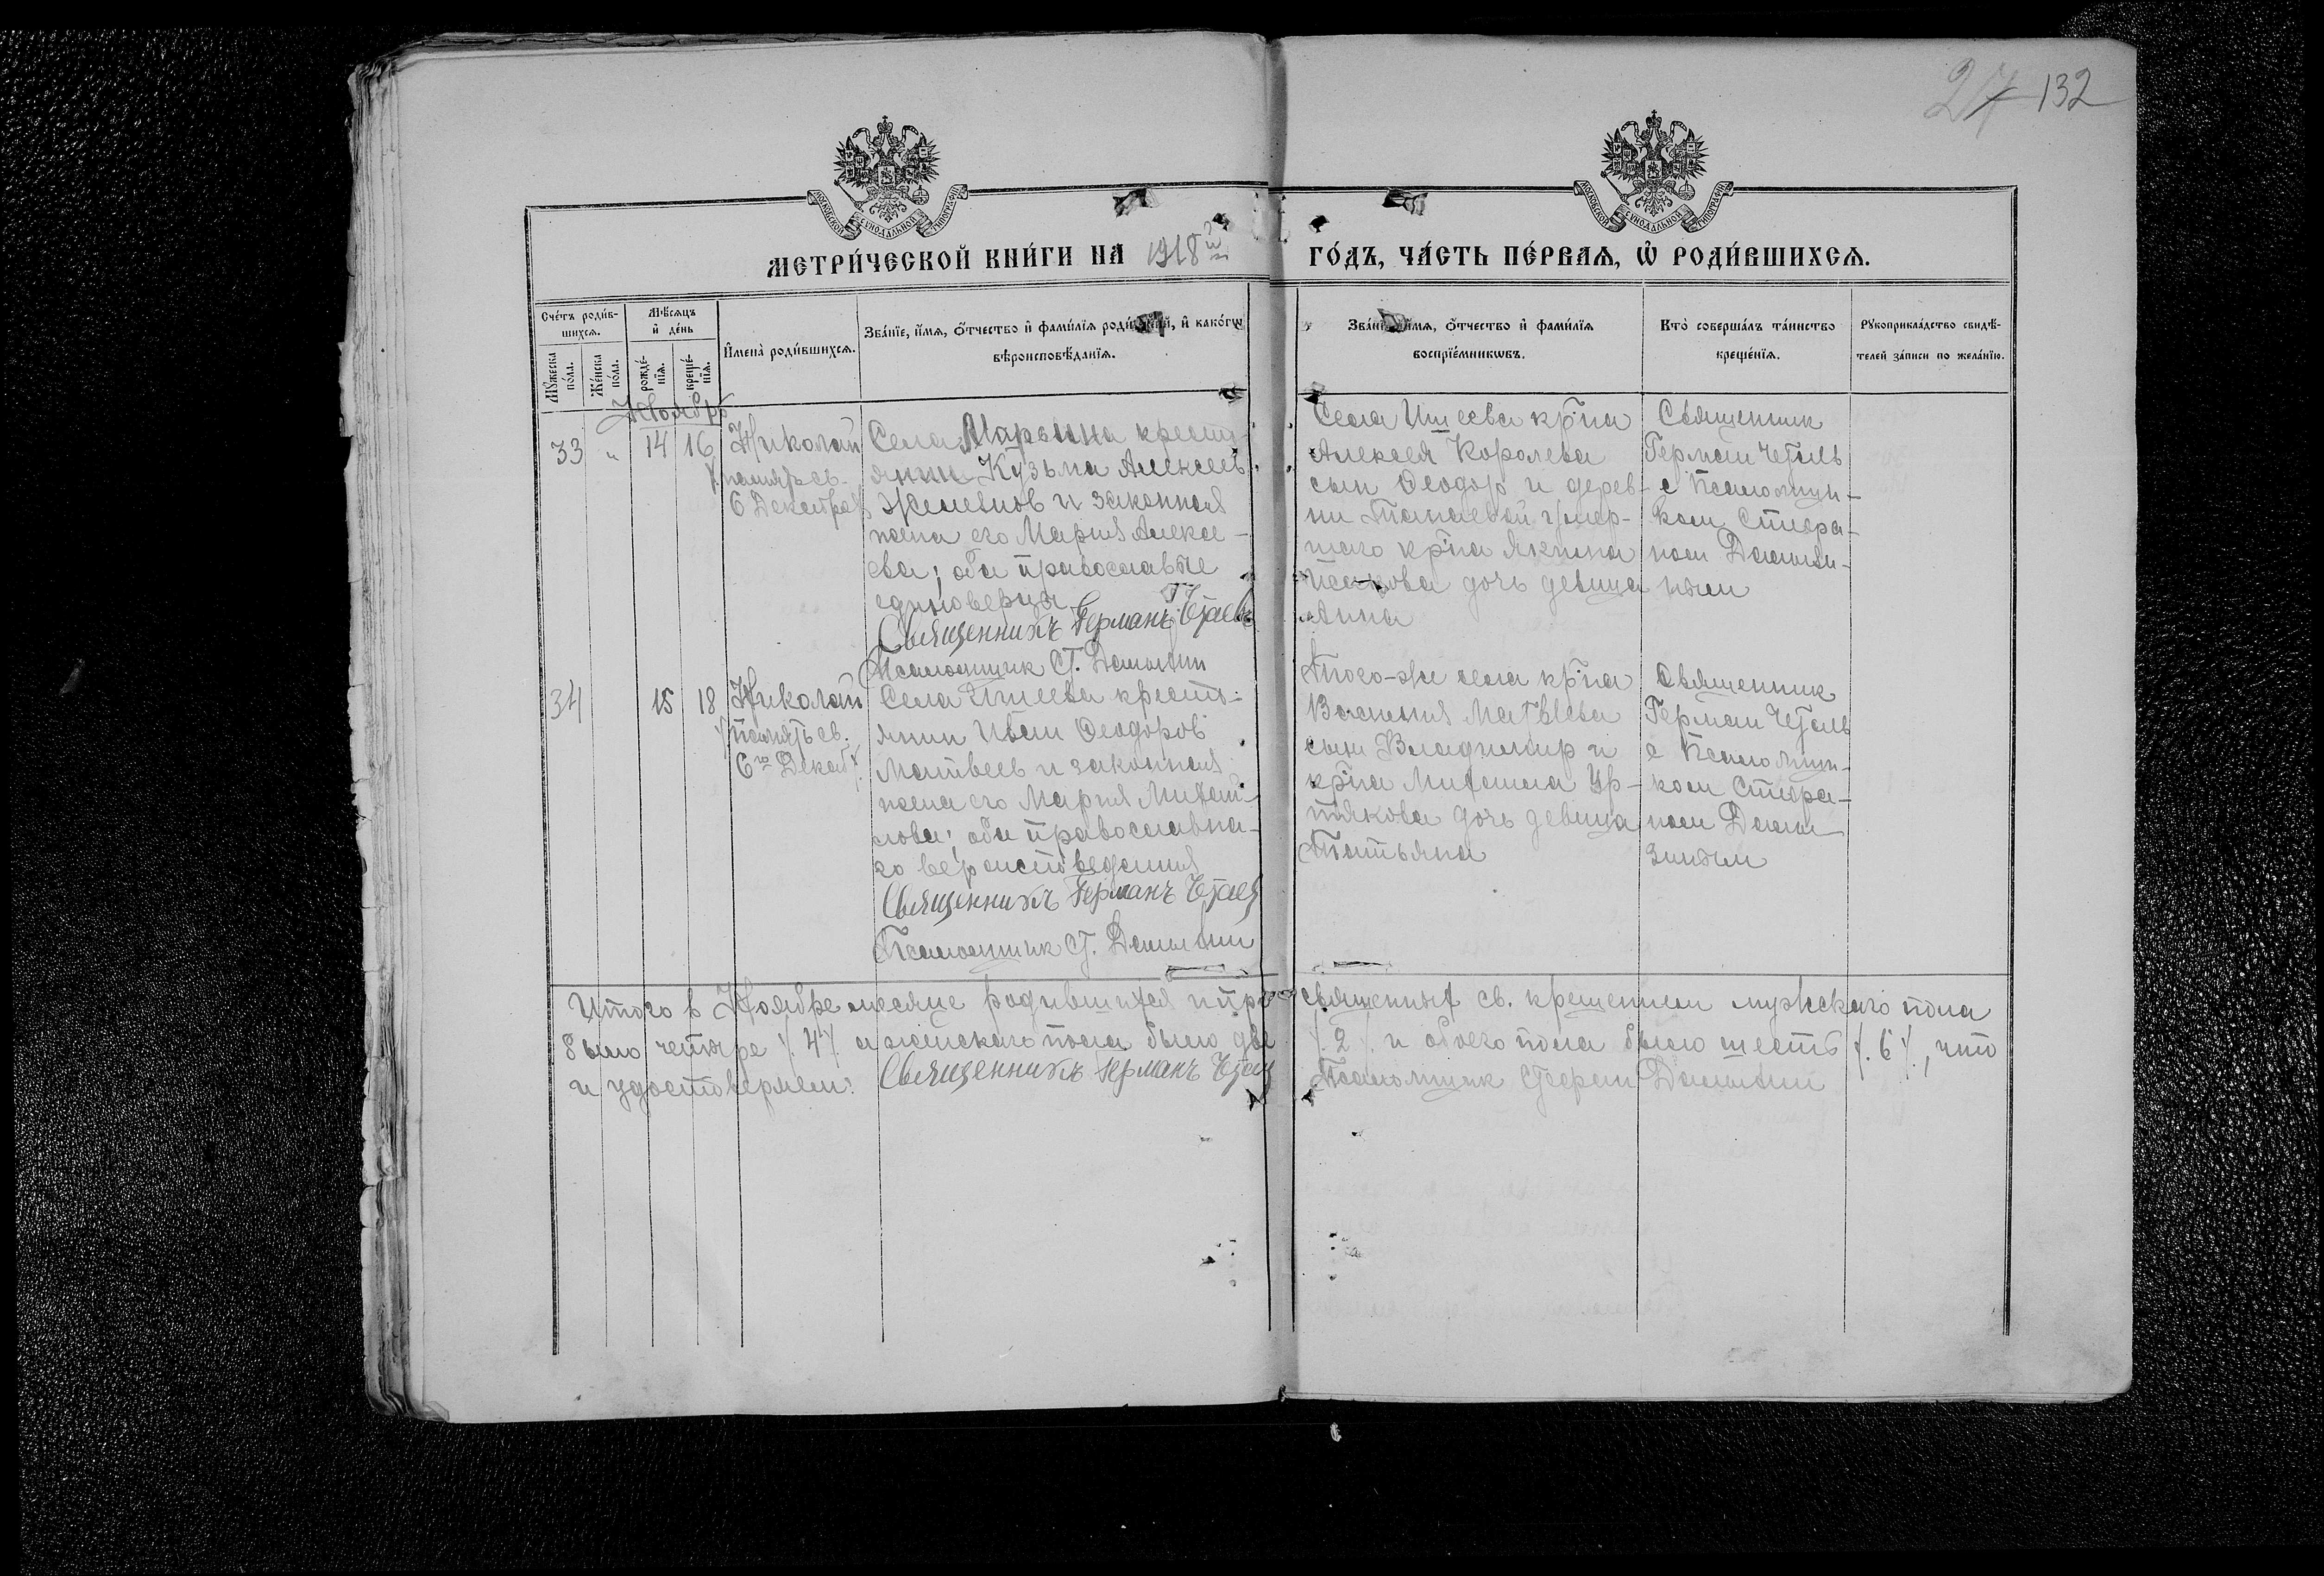 27 132
МОСКОВСКОЙ СѴНОДАЛЬНОЙ ТИПОГРАФІИ
МОСКОВСКОЙ СѴНОДАЛЬНОЙ ТИПОГРАФІИ
МЕТРИ́ЧЕСКОЙ КНИ́ГИ НА 1918 й ГО́ДЪ, ЧА́СТЬ ПЕ́РВАЯ, Ѡ҆ РОДИ́ВШИХСЯ.
Сче́тъ роди́в-
шихся.
Мꙋ́жеска по́ла.
Же́нска по́ла.
Мѣ́сяцъ
и҆ де́нь
рожде́-
нїѧ.
креще́-
нїѧ.
И҆мена̀ роди́вшихся.
Зва́нїе, и҆́мя, ѻ҆́тчество и҆ фами́лїя роди́телей, и҆ како́гѡ
вѣроисповѣ́данїя.
Зва́нїе, и҆́мя, ѻ҆́тчество и҆ фами́лїя
воспрїе́мникѡвъ.
Кто̀ соверша́лъ та́инство
креще́нїя.
Рꙋкоприкла́дство свидѣ́-
телей за́писи по жела́нїю.
Ноябрь
33 " 14 16
Николай
память св.
6 Декабря
Села Марьина крестья-
янин Кузьма Алексеев
Железнов и законная
жена его Мария Алексе-
ева; оба православные
единоверцы
Священникъ Германъ
Псаломщик С.
Села Ишеева кр-на
Алексея Королева
сын Феодор и дерев-
ни умер-
шаго кр-на Якима
дочь девица
Анна
Священник
Герман
с Псаломщи-
ком Стефа-
ном
34 15 18
Николай
память св.
6го Декаб.
Села Ишеева кресть-
янин Иван Феодоров
Матвеев и законная
жена его Мария Михай-
лова; оба православна-
го вероисповедания
Священникъ Германъ
Псаломщик С.
Того-же села кр-на
Василия Матвеева
сын Владимир и
кр-на Михаила
дочь девица
Татьяна
Священник
Герман
с Псаломщи-
ком Стефа-
ном
Итого в Ноябре месяце родившихся и просвященных св. крещением мужскаго пола
было четыре /. 4 /. и женскаго пола было две /. 2 /. и обоего пола было шесть /. 6 /., что
и удостоверяем: Священникъ Германъ Псаломщик Стефан